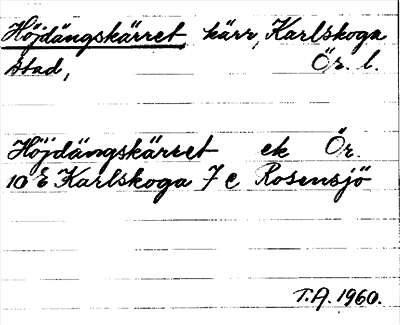 Höjdängskärret, kärr, Karlskoga
stad, Ör. l.
Höjdängskärret ek Ör.
10 E Karlskoga 7 c Rosensjö
T.A. 1960.